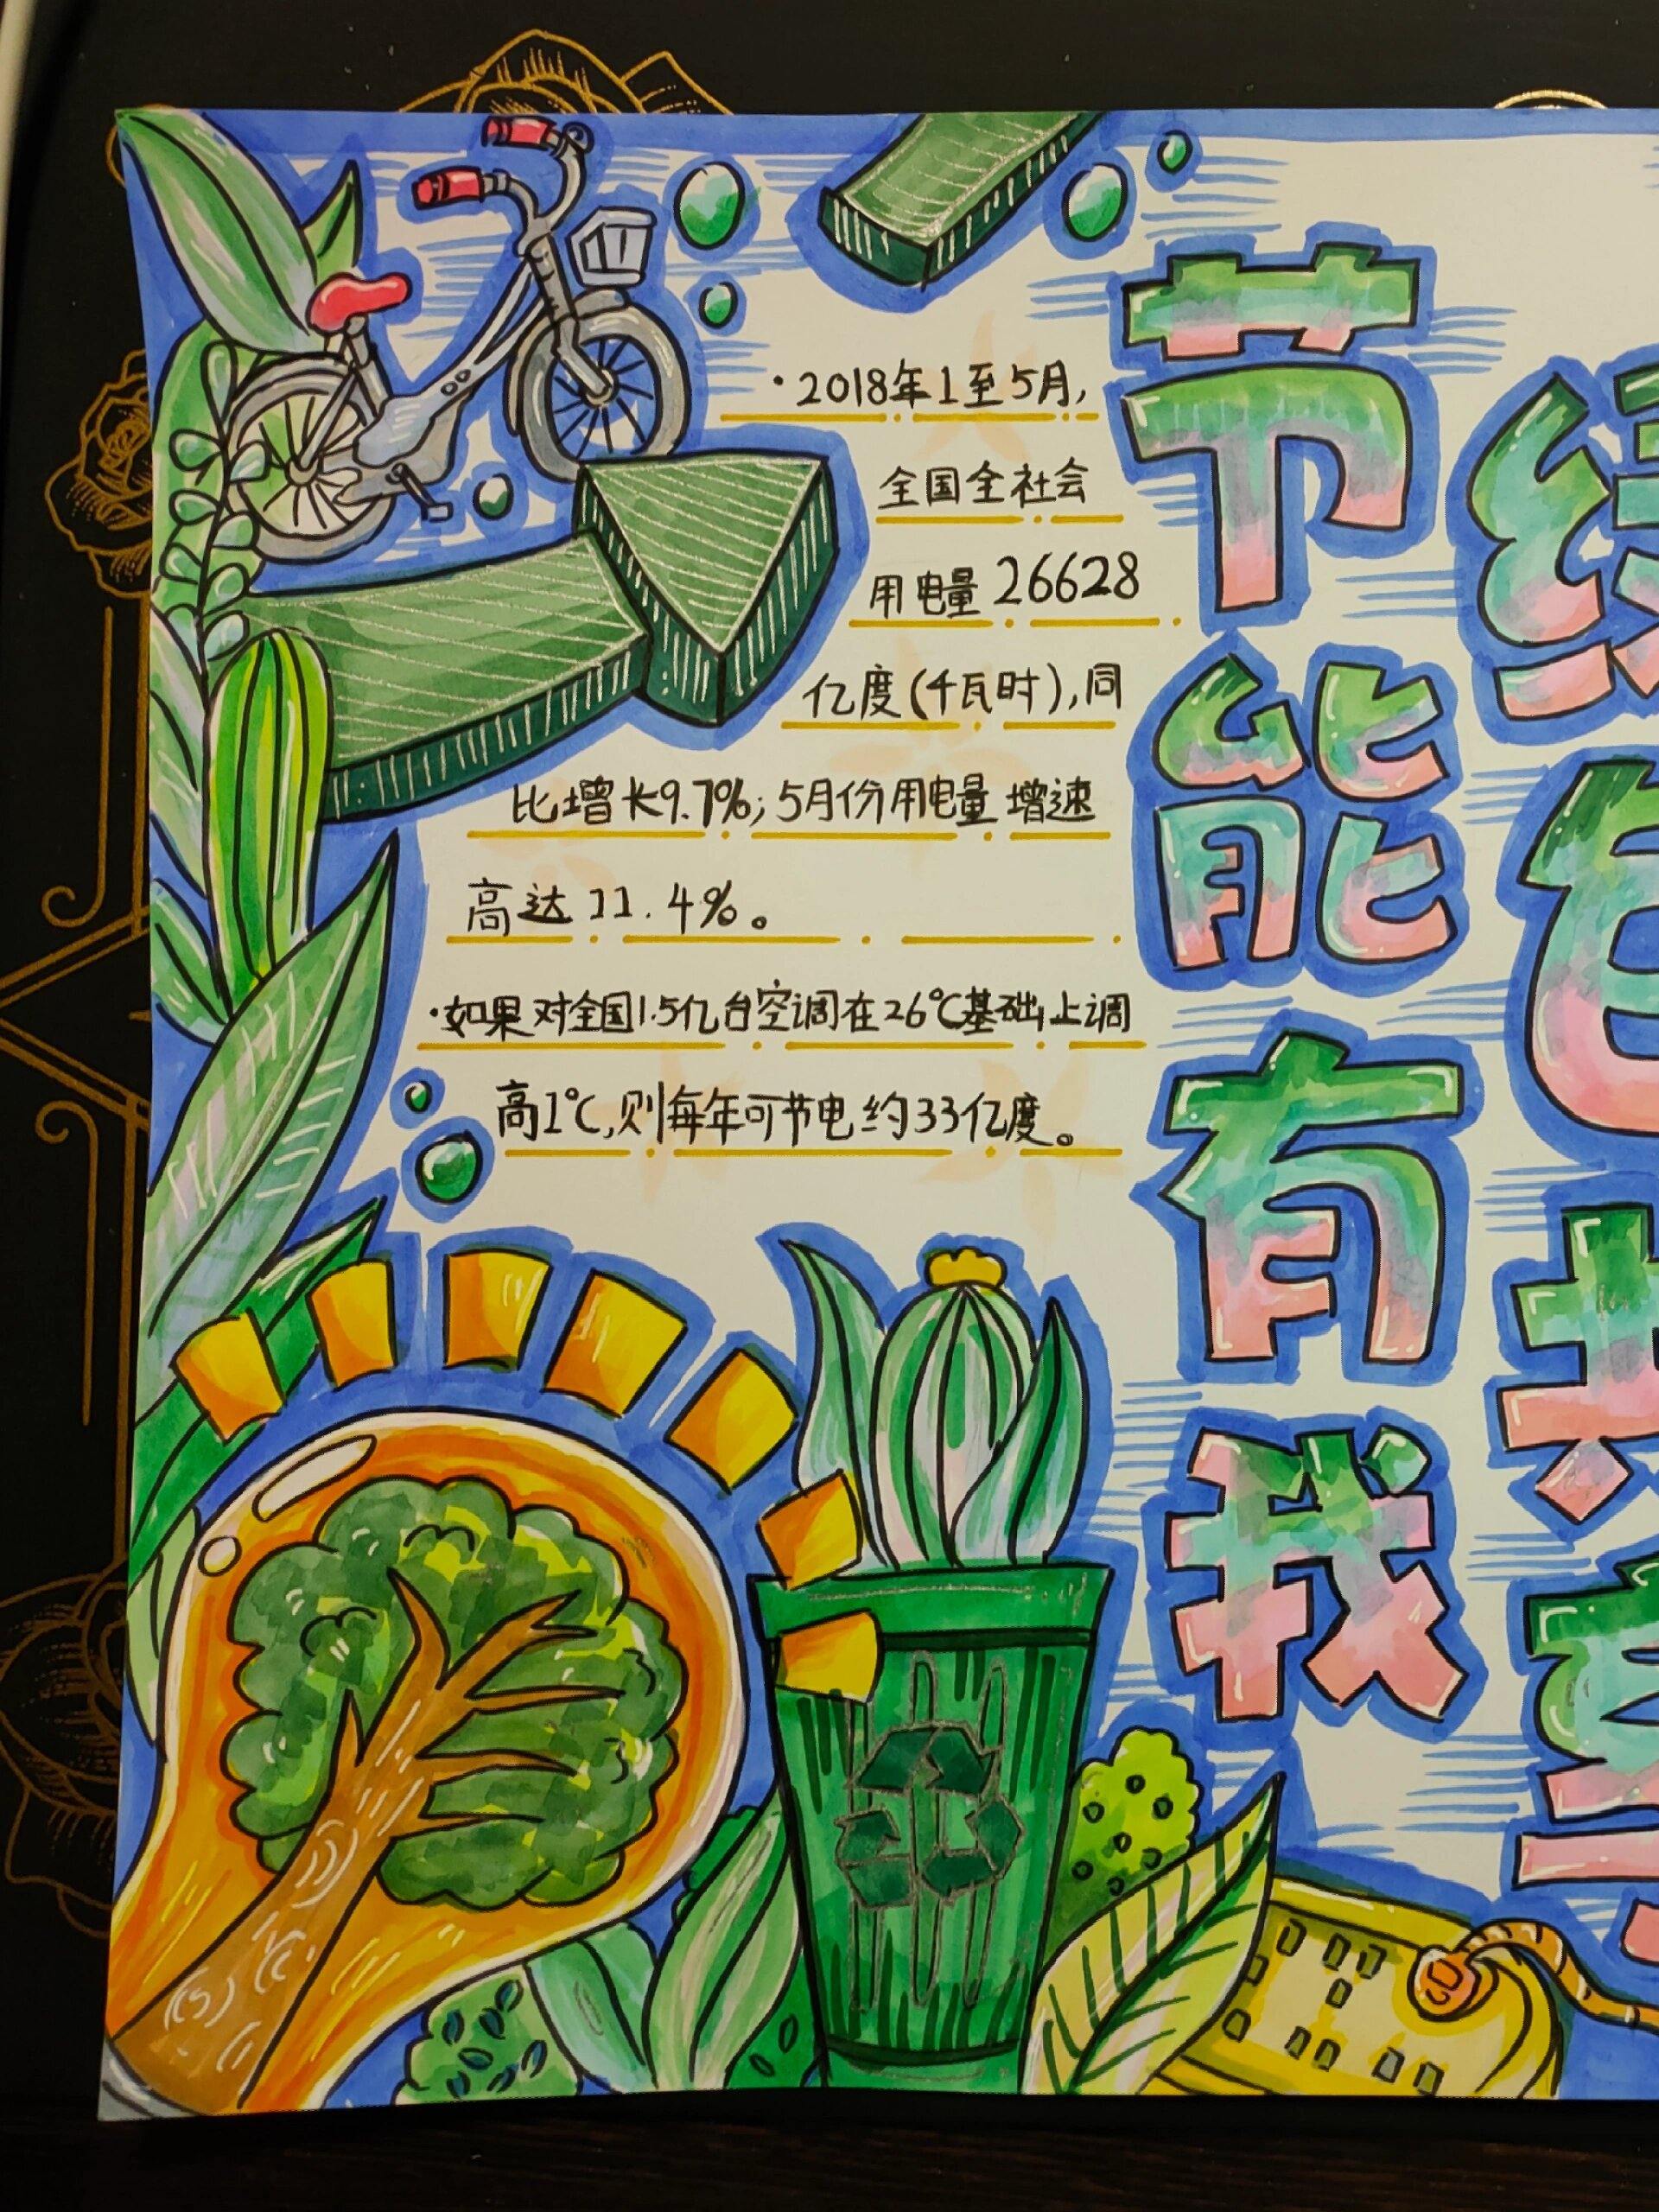 ·2018年1至5月,
全国全社会
用电量26628
亿度(千瓦时),同
比增长9.7%;5月份用电量增速
高达11.4%。
·如果对全国1.5亿台空调在26℃基础上调
高1℃,则每年可节电约33亿度。
节能有我
绿色共享